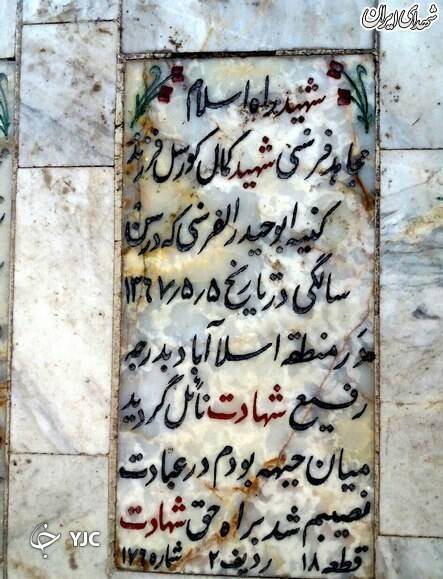 شهدای ایران
شهید براه اسلام
مجاهد فرنسی شهید کمال کورسل فرزند
کنیه ابوحیدر الفرنسی که در سن
سالگی در تاریخ ۱۳۶۷/۵/۵
در منطقه اسلام آباد بدرجه
رفیع شهادت نائل گردید
میان جبهه بودم در عبادت
نصیبم شد براه حق شهادت
قطعه ۱۸ ردیف ۲ شماره ۱۷۶
YJC